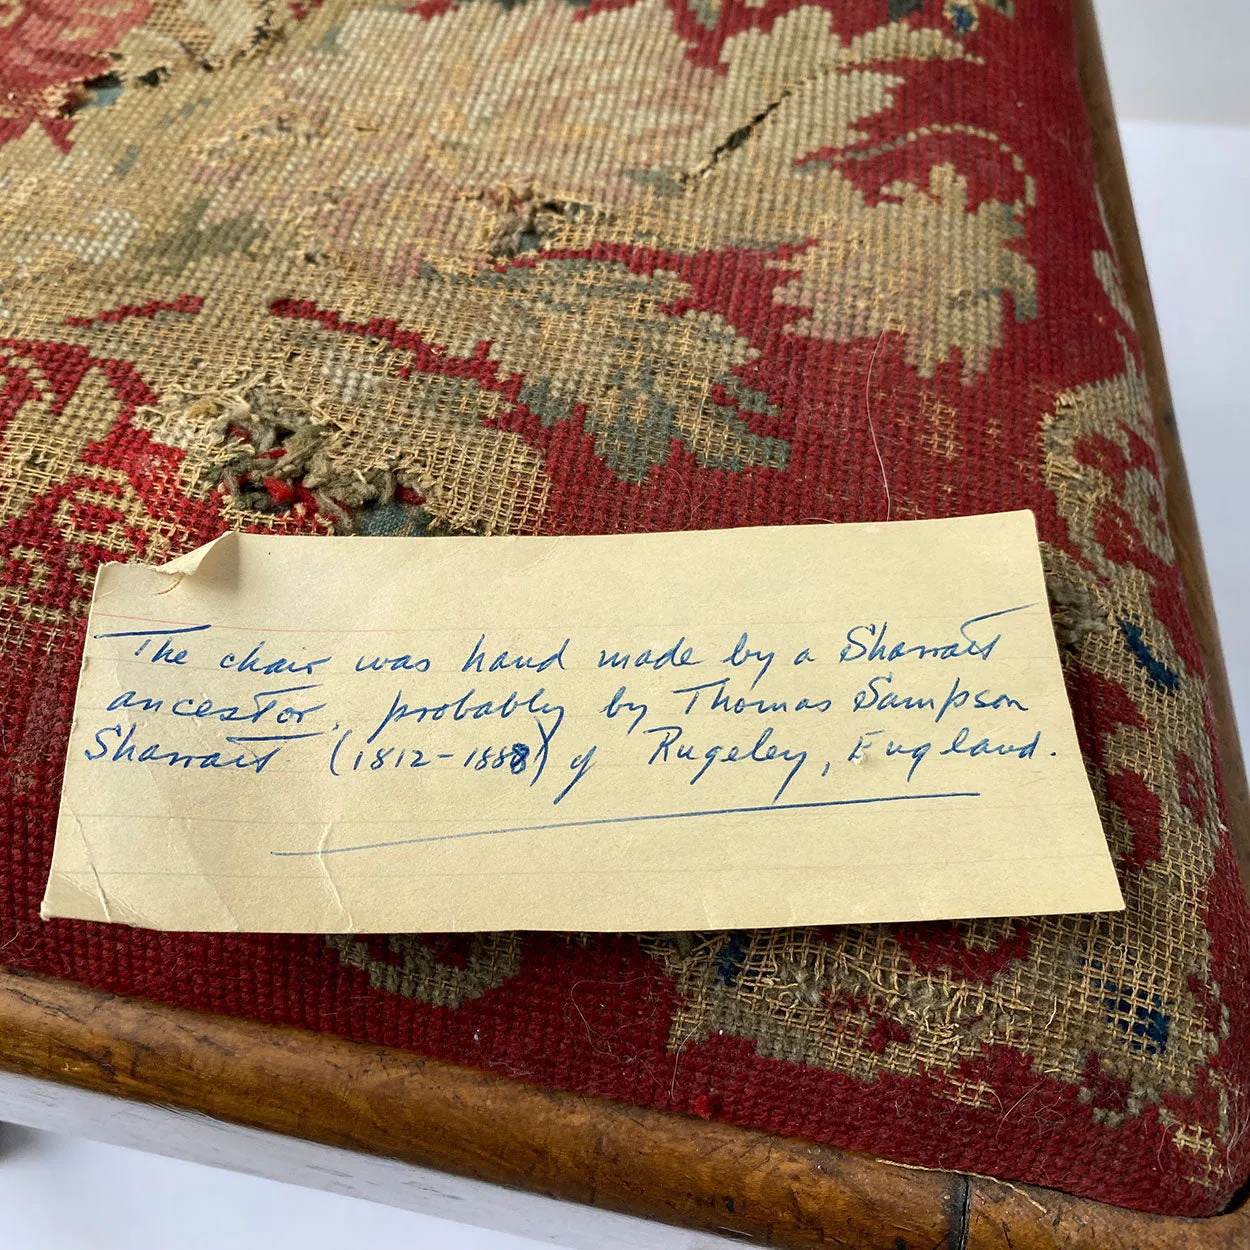 The chair was hand made by a Sharratt
ancestor, probably by Thomas Sampson
Sharratt (1812-1888) of Rugeley, England.